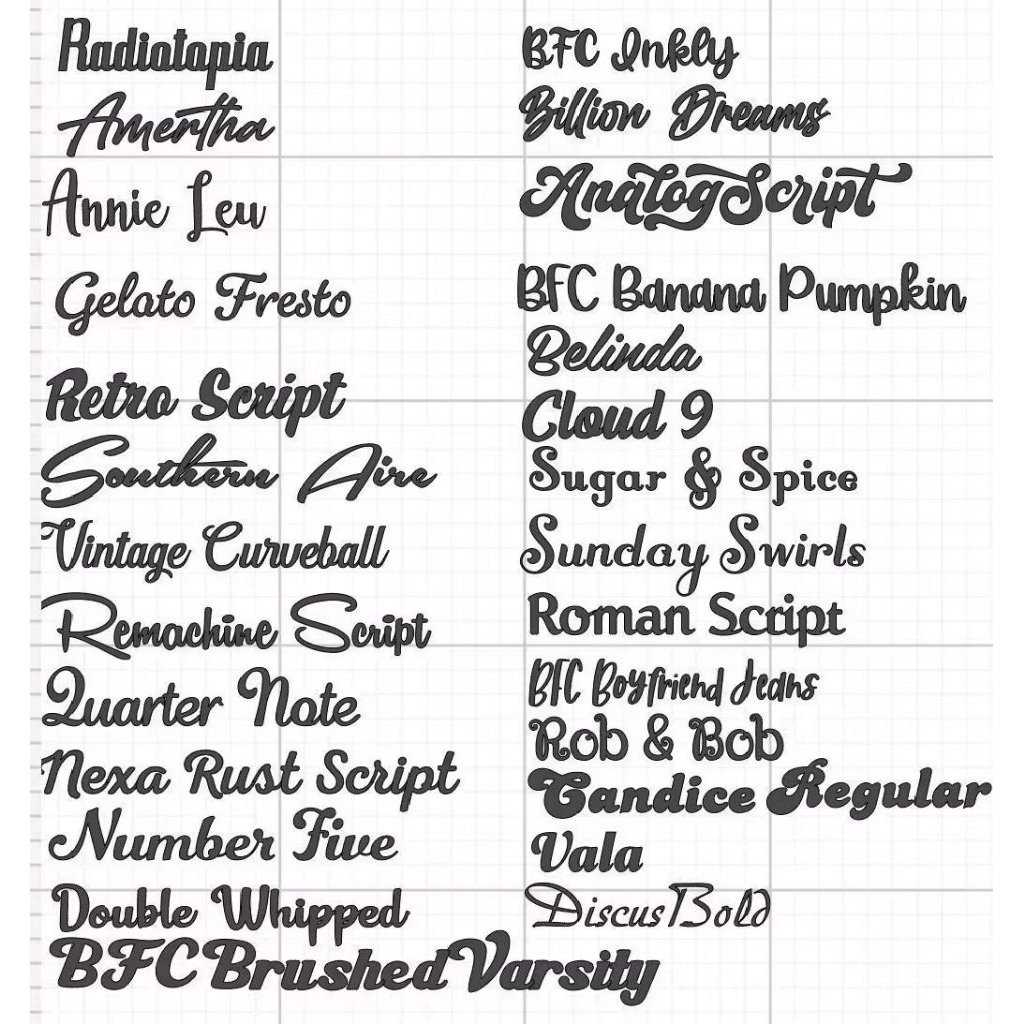 Radiotopia
Amertha
Annie Leu
Gelato Fresto
Retro Script
Southern Aire
Vintage Curveball
Remachine Script
Quarter Note
Nexa Rust Script
Number Five
Double Whipped
BFC Brushed Varsity
BFC Inkly
Billion Dreams
Analog Script
BFC Banana Pumpkin
Belinda
Cloud 9
Sugar & Spice
Sunday Swirls
Roman Script
BFC Boyfriend Jeans
Rob & Bob
Candice Regular
Vala
Discus Bold